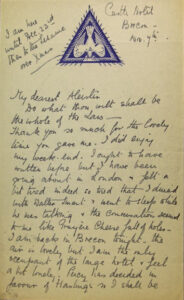 I am here
until Dec 12nd
then to the
Castle Hotel
Brecon
Nov. 9th
My dearest Aleister
Do what thou wilt shall be
the whole of the Law —
Thank you so much for the lovely
time you gave me. I did enjoy
my week-end. I ought to have
written before but I have been
going about in London & felt a
bit tired indeed so tired that I dined
with & went to sleep while
he was talking & the conversation seemed
to me like Gruyère Cheese, full of holes —
I came back in Brecon tonight. The
air is lovely, but I am the only
occupant of the large hotel & feel
a bit lonely. Percy has decided in
favour of Hastings so I shall be